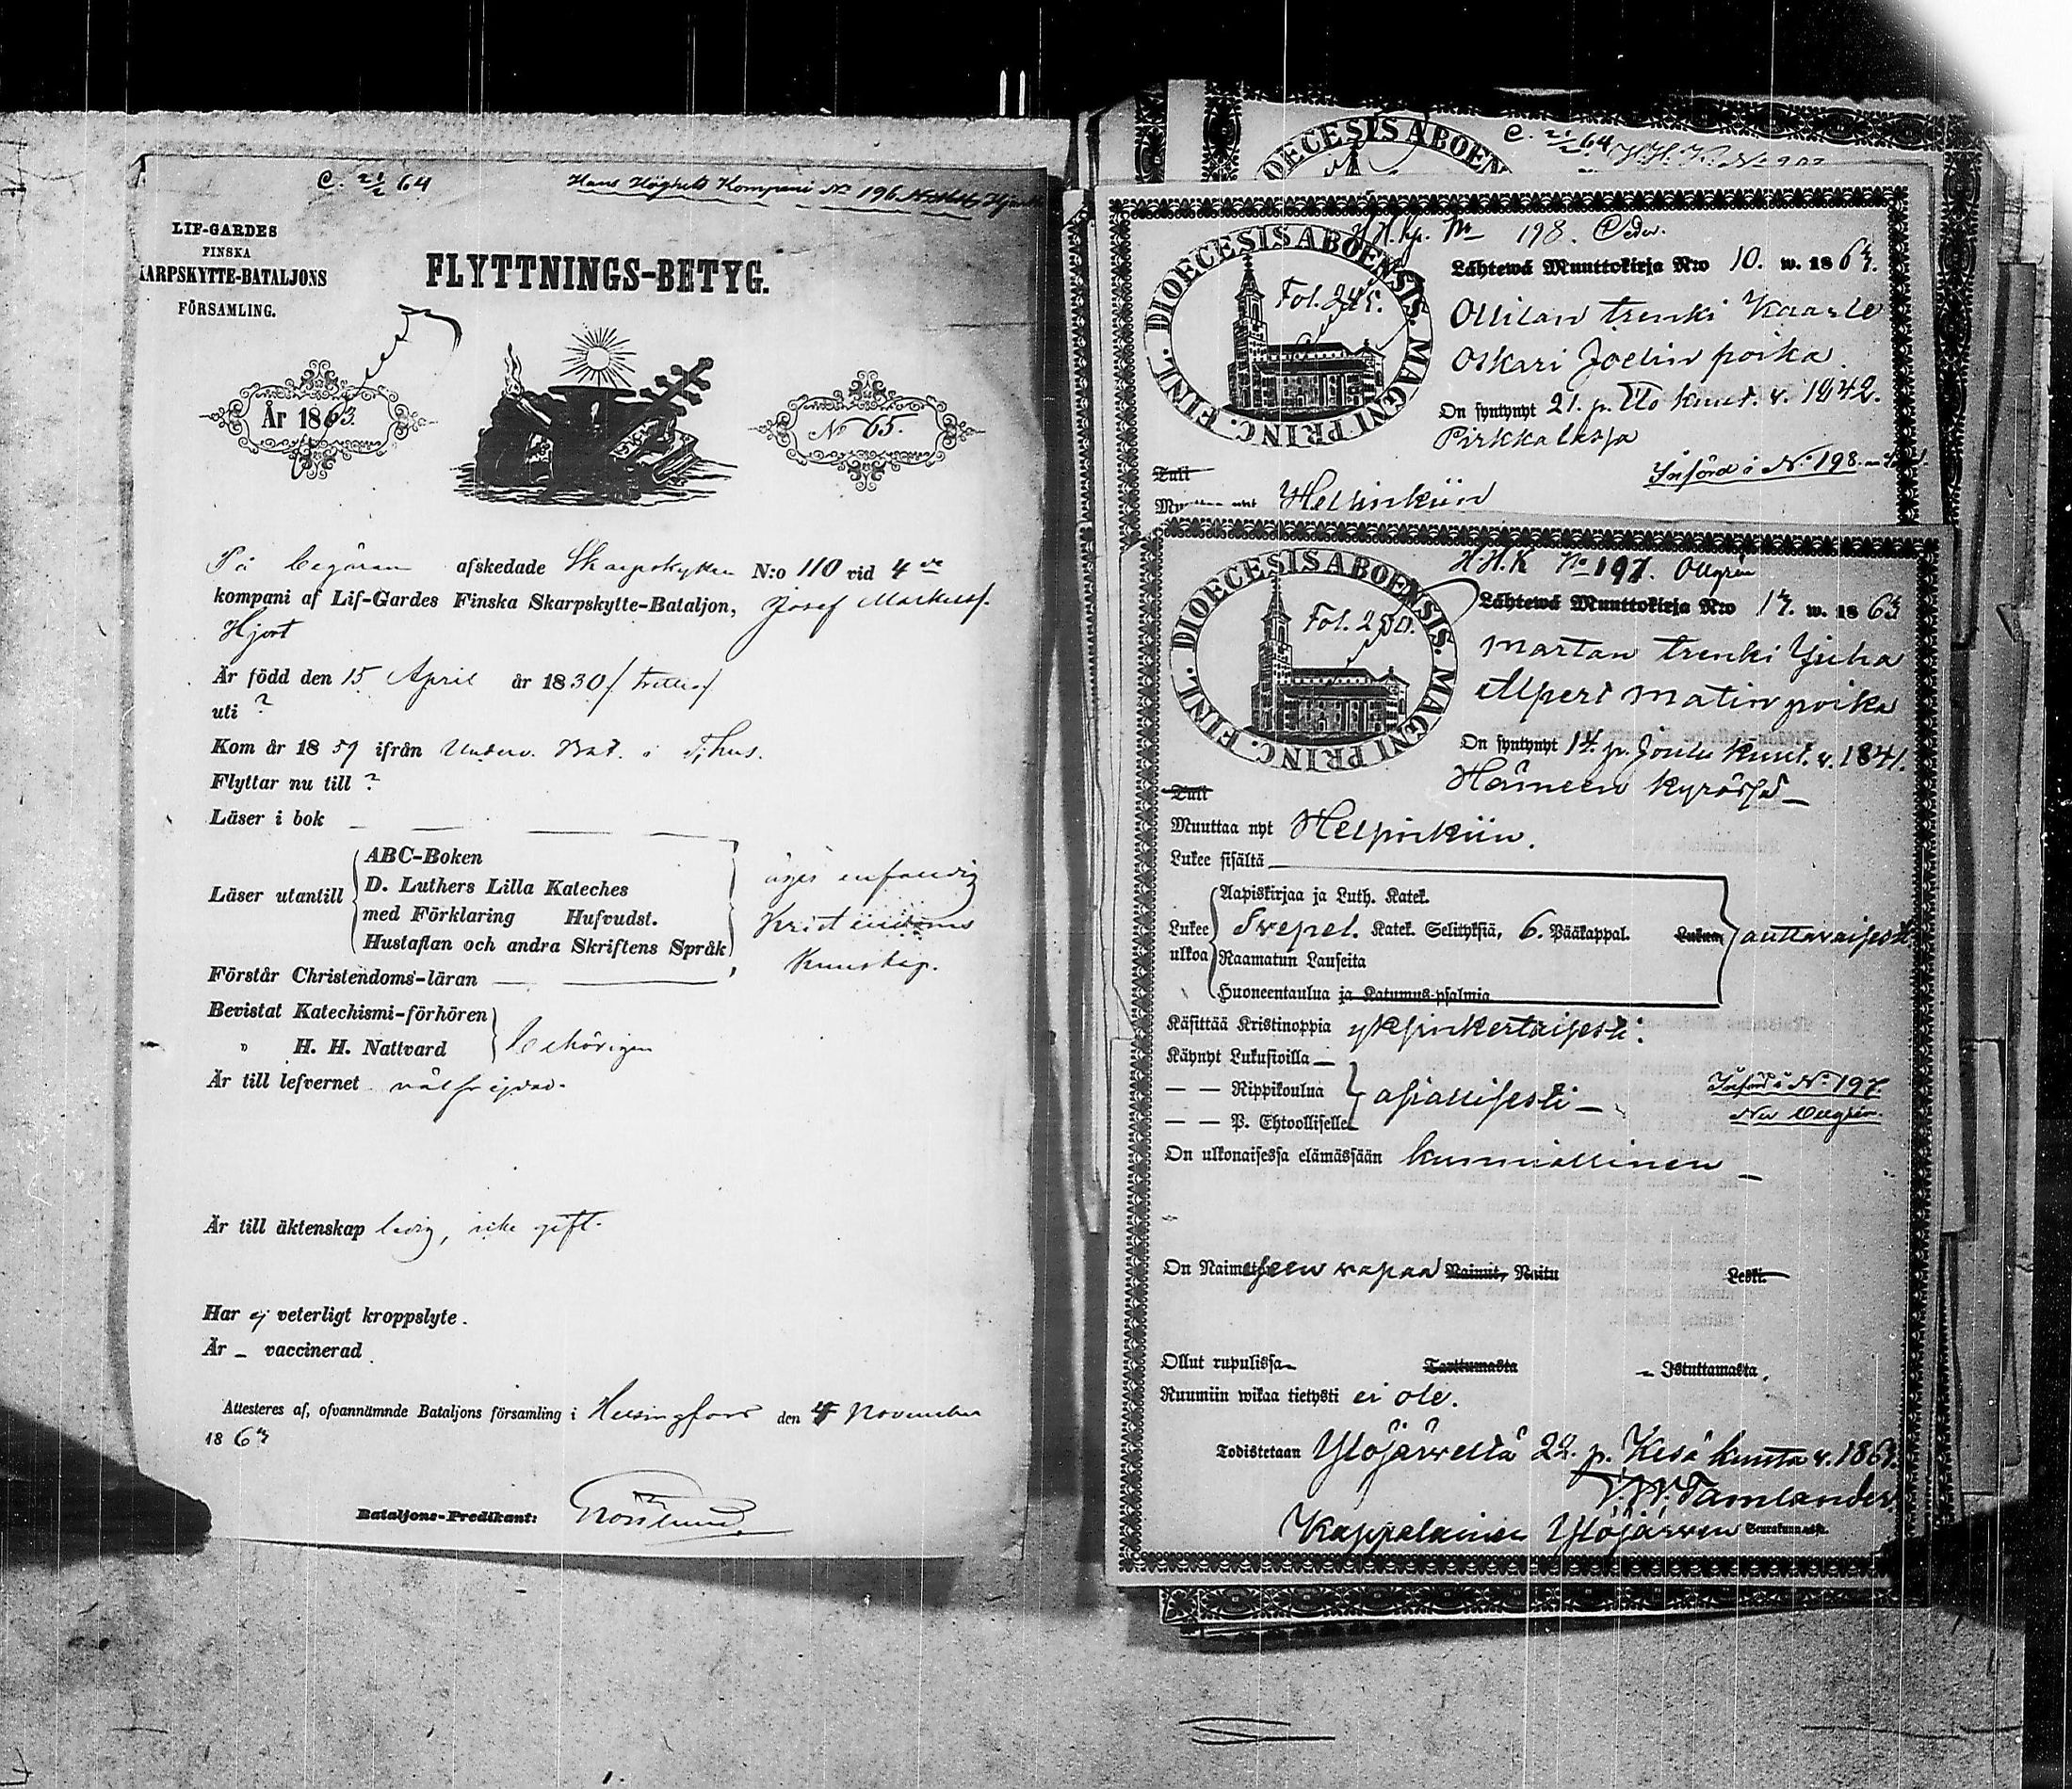 C. 21/2 64
Hans Höghets Kompani No 196
LIF-GARDES
FINSKA
KARPSKYTTE-BATALJONS
FÖRSAMLING.
FLYTTNINGS-BETYG.
År 1863.
No 65.
På begäran afskedade Skarpskytten N:o 110 vid 4de
kompani af Lif-Gardes Finska Skarpskytte-Bataljon, Josef Markusf.
Hjort
Är född den 15 April år 1830 / trettio /
uti ?
Kom år 1857 ifrån Underv. Bat. i T;hus.
Flyttar nu till ?
Läser i bok
Läser utantill
ABC-Boken
D. Luthers Lilla Kateches
med Förklaring Hufvudst.
Hustaflan och andra Skriftens Språk
äger enfaldig
Kristendoms
Kunskap.
Förstår Christendoms-läran
Bevistat Katechismi-förhören
" H. H. Nattvard
behörigen
Är till lefvernet välfrejdad.
Är till äktenskap ledig, icke gift.
Har ej veterligt kroppslyte.
Är – vaccinerad
Attesteres af, ofvannämnde Bataljons församling i Helsingfors den 4 November
1863
Bataljons-Predikant:
DIOECESIS ABOEN
C. 21/2 64
H.H.Kp. No 198. Ceder.
DIOECESIS ABOENSIS. MAGNI PRINC. FINL.
Fol. 245.
Lähtewä Muuttokirja N:o 10. w. 1863.
Ollilan trenki Kaarle
Oskari Joelin poika
On syntynyt 21. p. Elo kuut. v. 1842.
Pirkkalassa
Införd i No 198.
Tuli
Muuttaa nyt Helsinkiin
H.H.K No 197. Ollgrén
DIOECESIS ABOENSIS. MAGNI PRINC. FINL.
Fol. 250.
Lähtewä Muuttokirja N:o 17. w. 1863
Martan trenki Juha
Alpert Matin poika
On syntynyt 14. p. Joulu kuut. v. 1841.
Hämeen kyrössä
Tuli
Muuttaa nyt Helsinkiin.
Lukee sisältä
Lukee ulkoa
Aapiskirjaa ja Luth. Katek.
Svepel. Katek. Selityksiä, 6. Pääkappal.
Raamatun Lauseita
Huoneentaulua ja Katumus-psalmia
auttavaisesti
Käsittää Kristinoppia yksinkertaisesti.
Käynyt Lukusioilla
— — Rippikoulua
— — P. Ehtoollisella
asiallisesti
Införd i No 197.
On ulkonaisessa elämässään kunniallinen
On Naimiseen vapaa Nainut, Naitu Leski.
Ollut rupulissa Tarttumasta Istuttamasta.
Ruumiin wikaa tietysti ei ole.
Todistetaan Ylöjärveltä 22. p. Kesä kuuta v. 1863.
Tamlander
Kappalainen Ylöjärven Seurakunnassa.